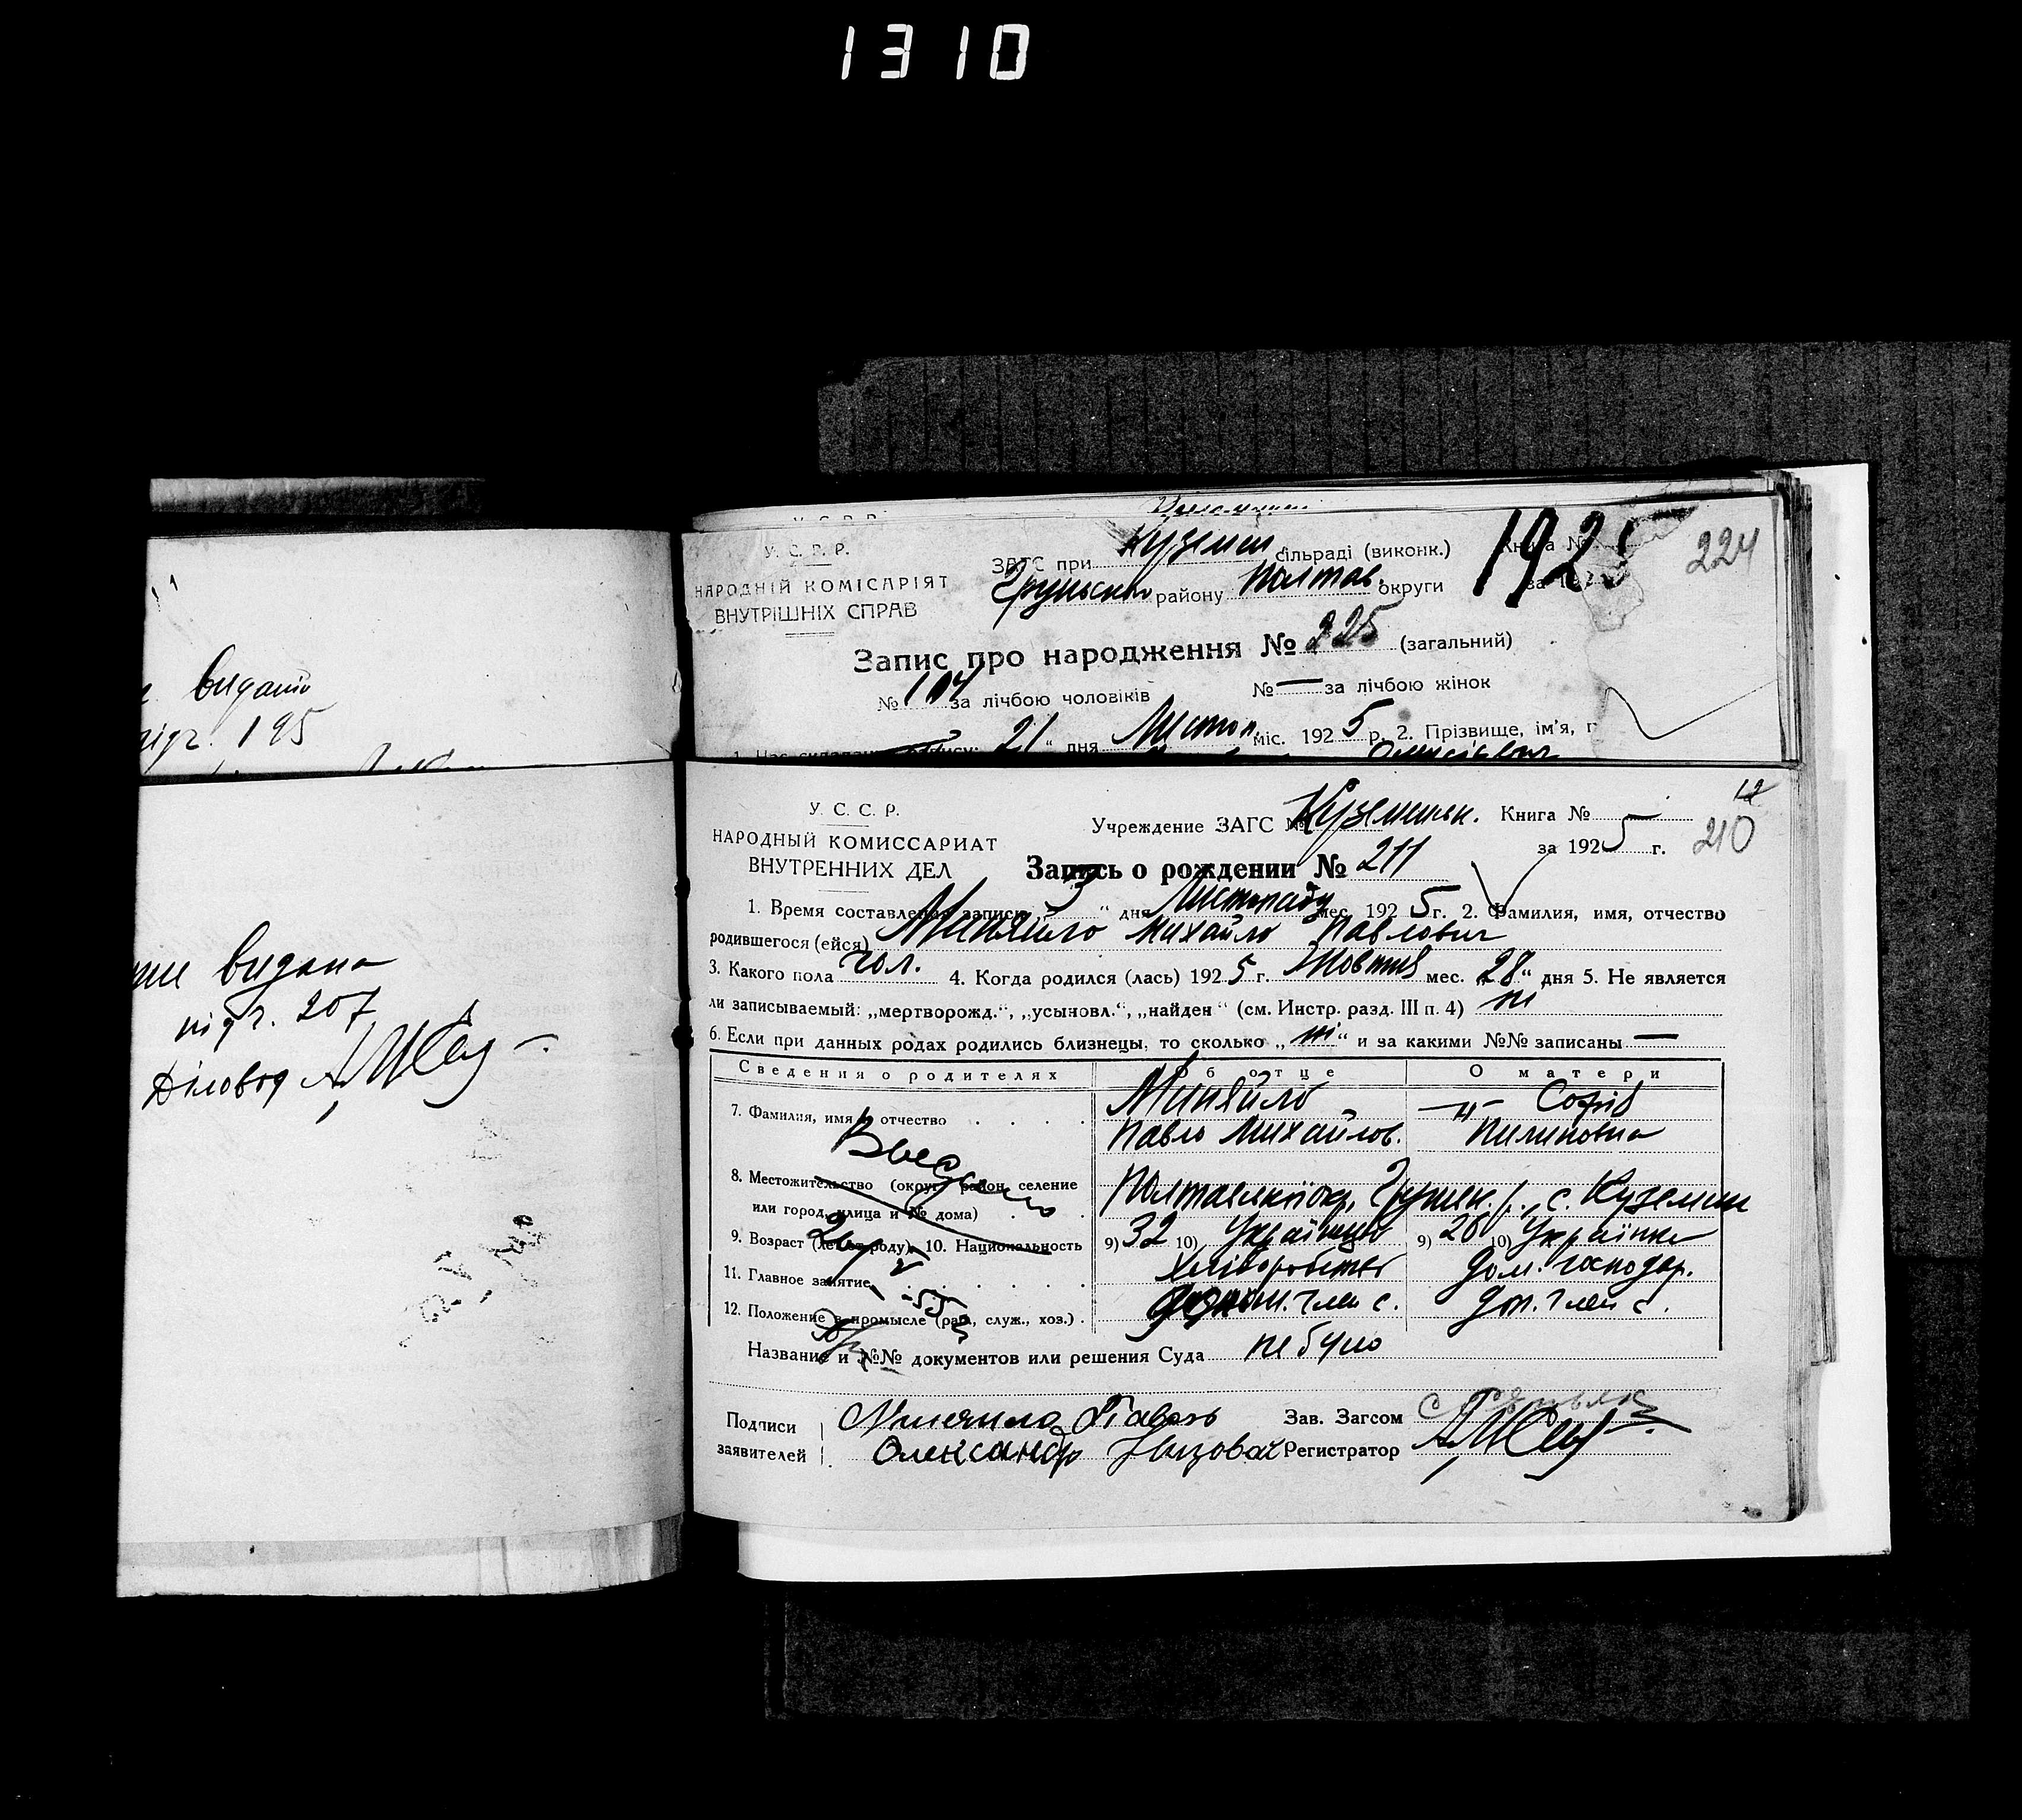 1310
видано
195
У. С. Р. Р.
НАРОДНІЙ КОМІСАРІЯТ
ВНУТРІШНІХ СПРАВ
ЗАГС при Куземен сільраді (виконк.) Книга №
Грунськ району Полтав. округи за 192
1925
224
Запис про народження № 225 (загальний)
№ 104 за лічбою чоловіків № — за лічбою жінок
21 " дня Листоп. міс. 1925 р. 2. Прізвище, ім'я,
видана
підг. 207
Діловод
У. С. С. Р.
НАРОДНЫЙ КОМИССАРИАТ
ВНУТРЕННИХ ДЕЛ
Учреждение ЗАГС № Куземинськ. Книга №
за 1925 г.
12
210
Запись о рождении № 211
1. Время составления записи „3" дня Листопаду мес. 1925 г. 2. Фамилия, имя, отчество
родившегося (ейся) Миняйло Михайло Павлович
3. Какого пола чол. 4. Когда родился (лась) 1925 г. Жовтня мес. „28" дня 5. Не является
ли записываемый: „мертворожд.", „усыновл.", „найден" (см. Инстр. разд. III п. 4) ні
6. Если при данных родах родились близнецы, то сколько „ні" и за какими №№ записаны —
Сведения о родителях Об отце О матери
7. Фамилия, имя и отчество Миняйло Павло Михайлов. —"— Софія Пилиповна
8. Местожительство (округ, район, селение
или город, улица и № дома) Полтавської окр., Грунськ. р., с. Куземин
9. Возраст (лет от роду). 10. Национальность 9) 32 10) Українець 9) 26 10) Українка
11. Главное занятие Хліборобство Дом. господар.
12. Положение в промысле (раб., служ., хоз.) член с. доп. член с.
Название и №№ документов или решения Суда не було
Подписи
заявителей
Миняйло Павло
Олександр Низовач
Зав. Загсом
Регистратор